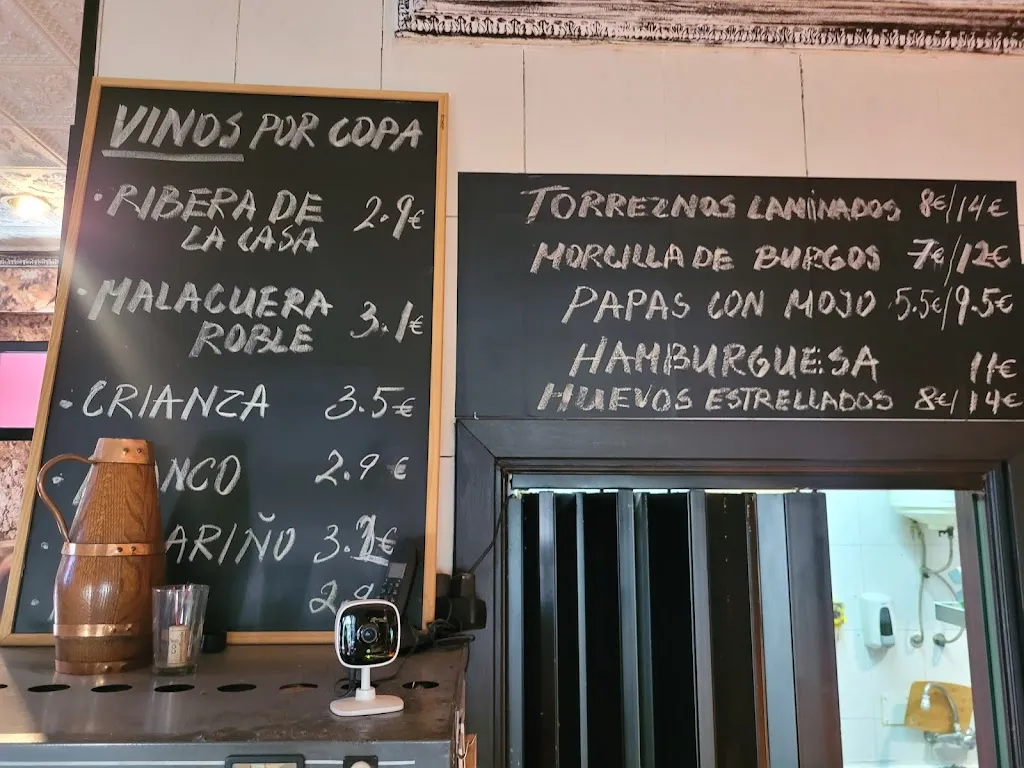 VINOS POR COPA
• RIBERA DE
LA CASA 2.9€
• MALACUERA
ROBLE 3.1€
• CRIANZA 3.5€
ANCO 2.9 €
ARIÑO 3.2€
TORREZNOS LAMINADOS 8€/14€
MORCILLA DE BURGOS 7€/12€
PAPAS CON MOJO 5.5€/9.5€
HAMBURGUESA 11€
HUEVOS ESTRELLADOS 8€/14€